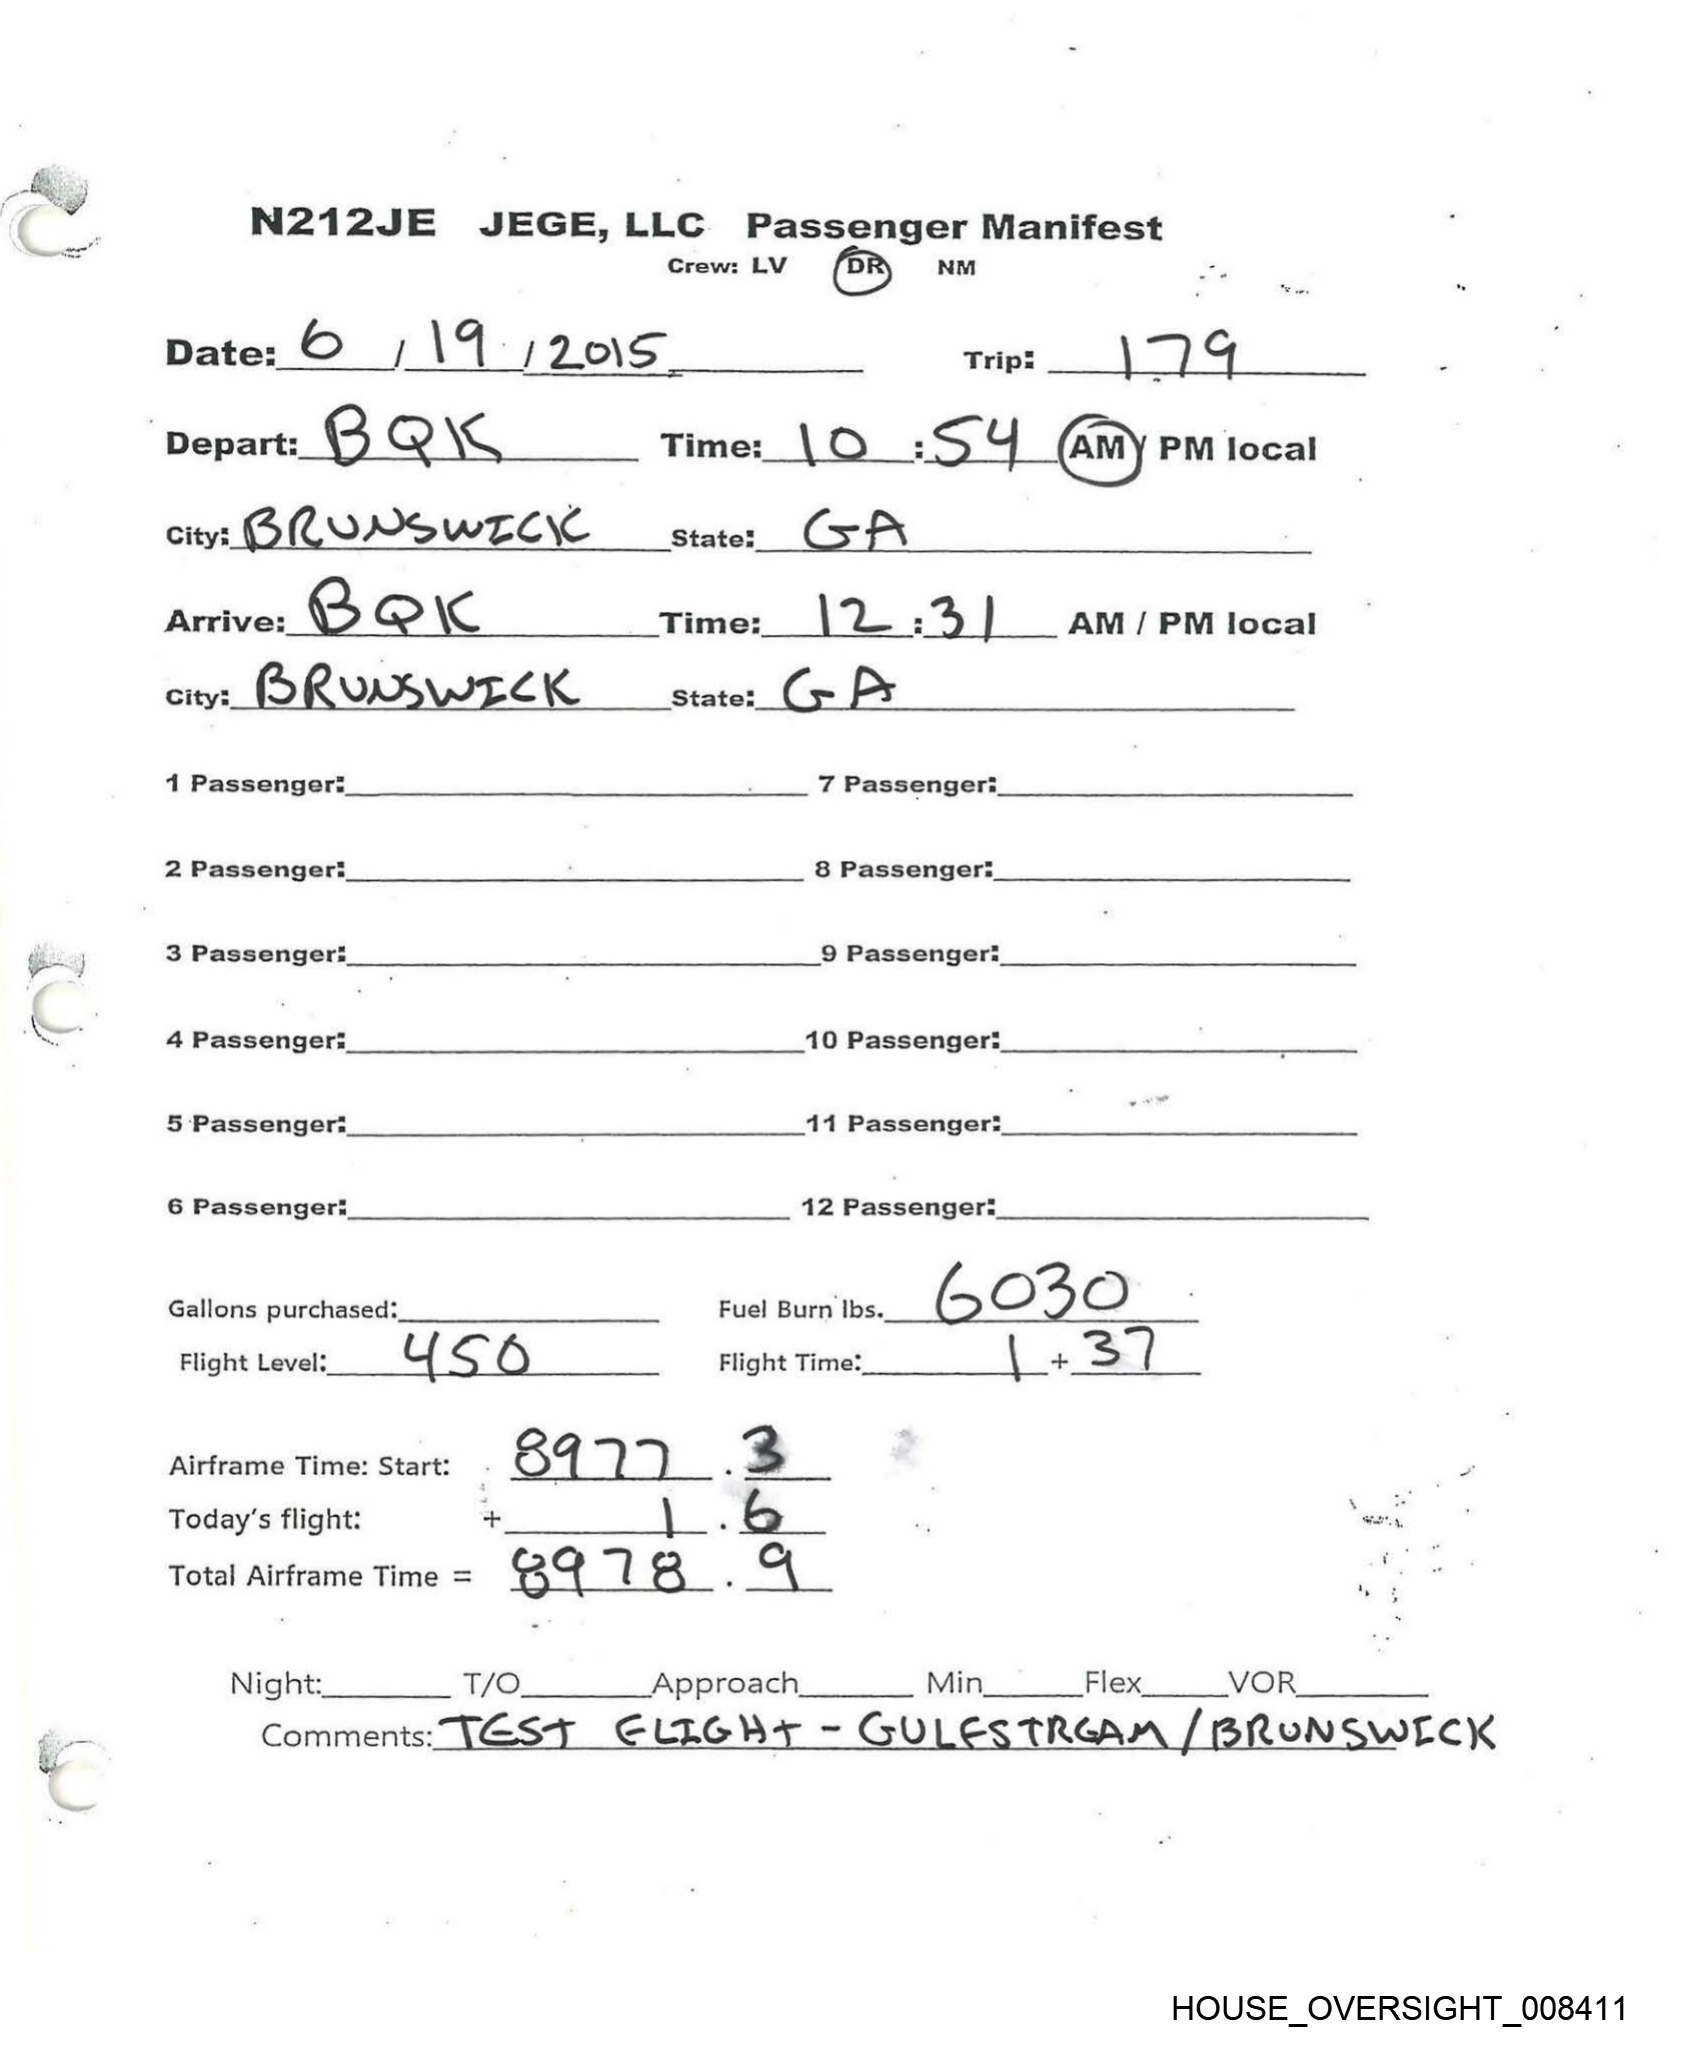 N212JE JEGE, LLC Passenger Manifest
Crew: LV DR NM
Date: 6 / 19 / 2015 Trip: 179
Depart: BQK Time: 10 : 54 AM / PM local
City: BRUNSWICK State: GA
Arrive: BQK Time: 12 : 31 AM / PM local
City: BRUNSWICK State: GA
1 Passenger: 7 Passenger:
2 Passenger: 8 Passenger:
3 Passenger: 9 Passenger:
4 Passenger: 10 Passenger:
5 Passenger: 11 Passenger:
6 Passenger: 12 Passenger:
Gallons purchased: Fuel Burn lbs. 6030
Flight Level: 450 Flight Time: 1 + 37
Airframe Time: Start: 8977 . 3
Today's flight: + 1 . 6
Total Airframe Time = 8978 . 9
Night: T/O Approach Min Flex VOR
Comments: TEST FLIGHT - GULFSTREAM / BRUNSWICK
HOUSE_OVERSIGHT_008411